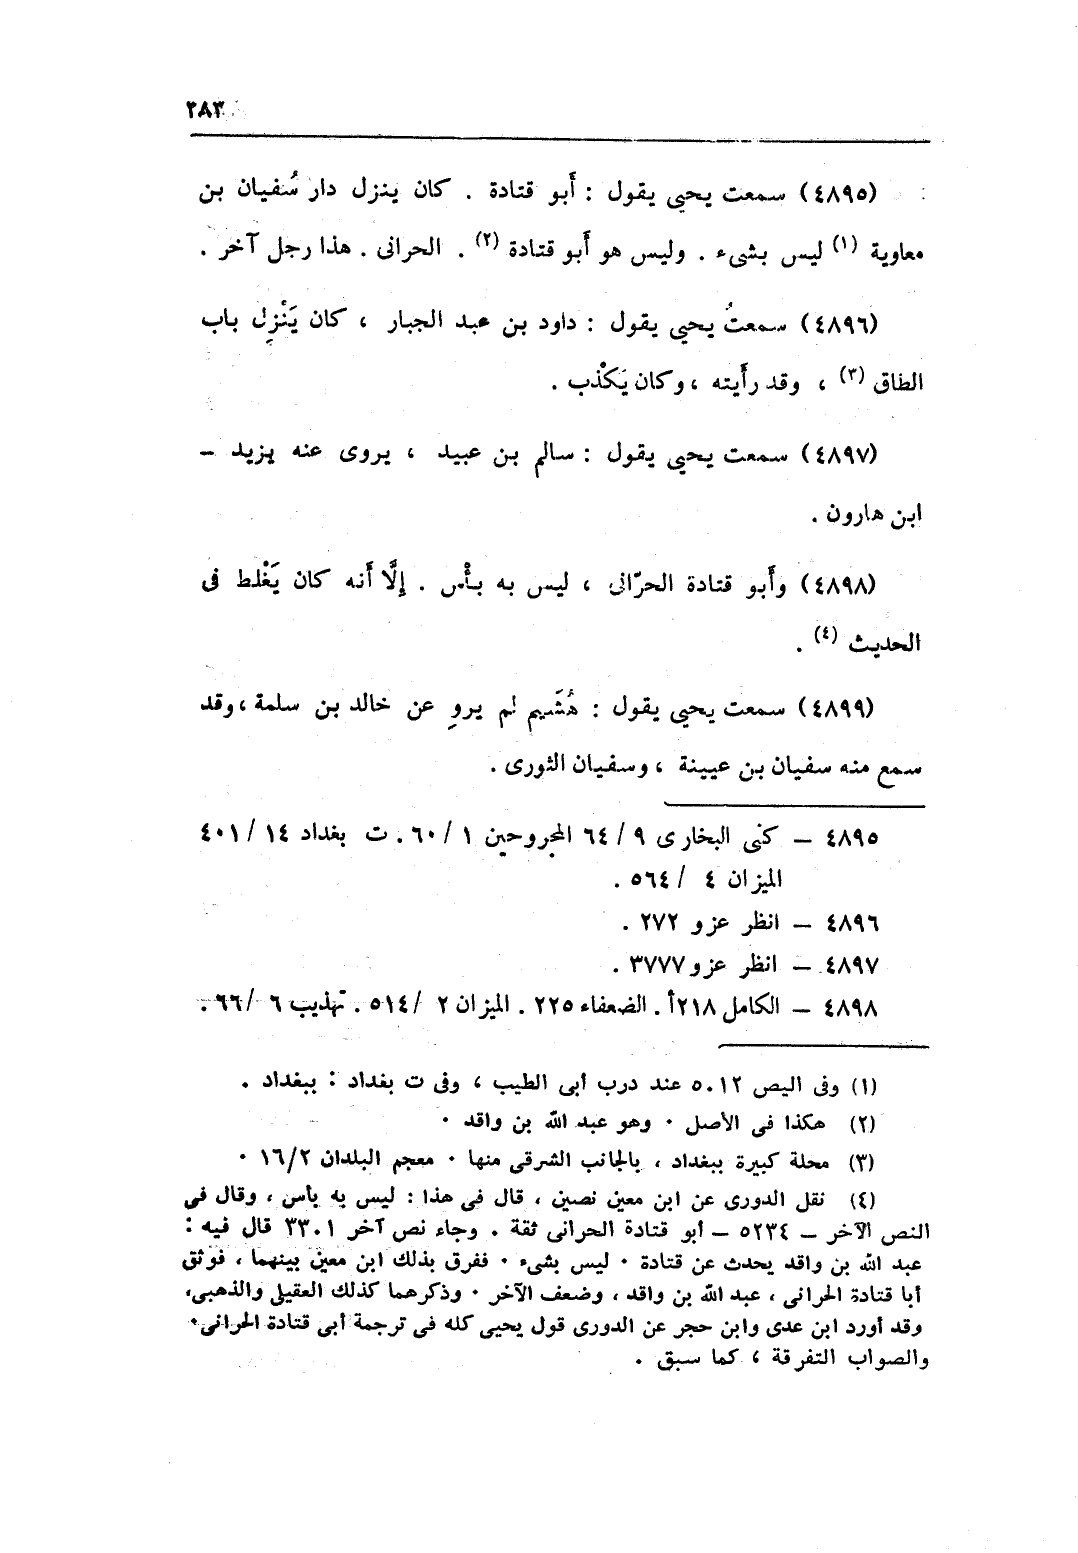 ٣٨٣
(٤٨٩٥) سمعت يحيى يقول : أَبو قتادة . كان ينزل دار سُفيان بن
معاوية (١) ليس بشىء . وليس هو أَبو قتادة (٢) . الحرانى . هذا رجل آخر .
(٤٨٩٦) سمعتُ يحيى يقول : داود بن عبد الجبار ، كان يَنْزِل باب
الطاق (٣) ، وقد رأَيته ، وكان يَكْذب .
(٤٨٩٧) سمعت يحيى يقول : سالم بن عبيد ، يروى عنه يزيد –
ابن هارون .
(٤٨٩٨) وأَبو قتادة الحرّانى ، ليس به بأْس . إِلَّا أَنه كان يَغْلط فى
الحديث (٤) .
(٤٨٩٩) سمعت يحيى يقول : هُشَيم لم يروِ عن خالد بن سلمة ، وقد
سمع منه سفيان بن عيينة ، وسفيان الثورى .
٤٨٩٥ – كنى البخارى ٩ / ٦٤ المجروحين ١ / ٦٠ . ت بغداد ١٤ / ٤٠١
الميزان ٤ / ٥٦٤ .
٤٨٩٦ – انظر عزو ٢٧٢ .
٤٨٩٧ – انظر عزو ٣٧٧٧ .
٤٨٩٨ – الكامل ٢١٨أ . الضعفاء ٢٢٥ . الميزان ٢ / ٥١٤ . تهذيب ٦ / ٦٦ .
(١) وفى اليص ٥٠١٢ عند درب أبى الطيب ، وفى ت بغداد : ببغداد .
(٢) هكذا فى الأصل . وهو عبد الله بن واقد .
(٣) محلة كبيرة ببغداد ، بالجانب الشرقى منها . معجم البلدان ١٦/٢ .
(٤) نقل الدورى عن ابن معين نصين ، قال فى هذا : ليس به بأس ، وقال فى
النص الآخر – ٥٢٣٤ – أبو قتادة الحرانى ثقة . وجاء نص آخر ٣٣٠١ قال فيه :
عبد الله بن واقد يحدث عن قتادة . ليس بشىء . ففرق بذلك ابن معين بينهما ، فوثق
أبا قتادة الحرانى ، عبد الله بن واقد ، وضعف الآخر . وذكرهما كذلك العقيلى والذهبى،
وقد أورد ابن عدى وابن حجر عن الدورى قول يحيى كله فى ترجمة أبى قتادة الحرانى.
والصواب التفرقة ، كما سبق .